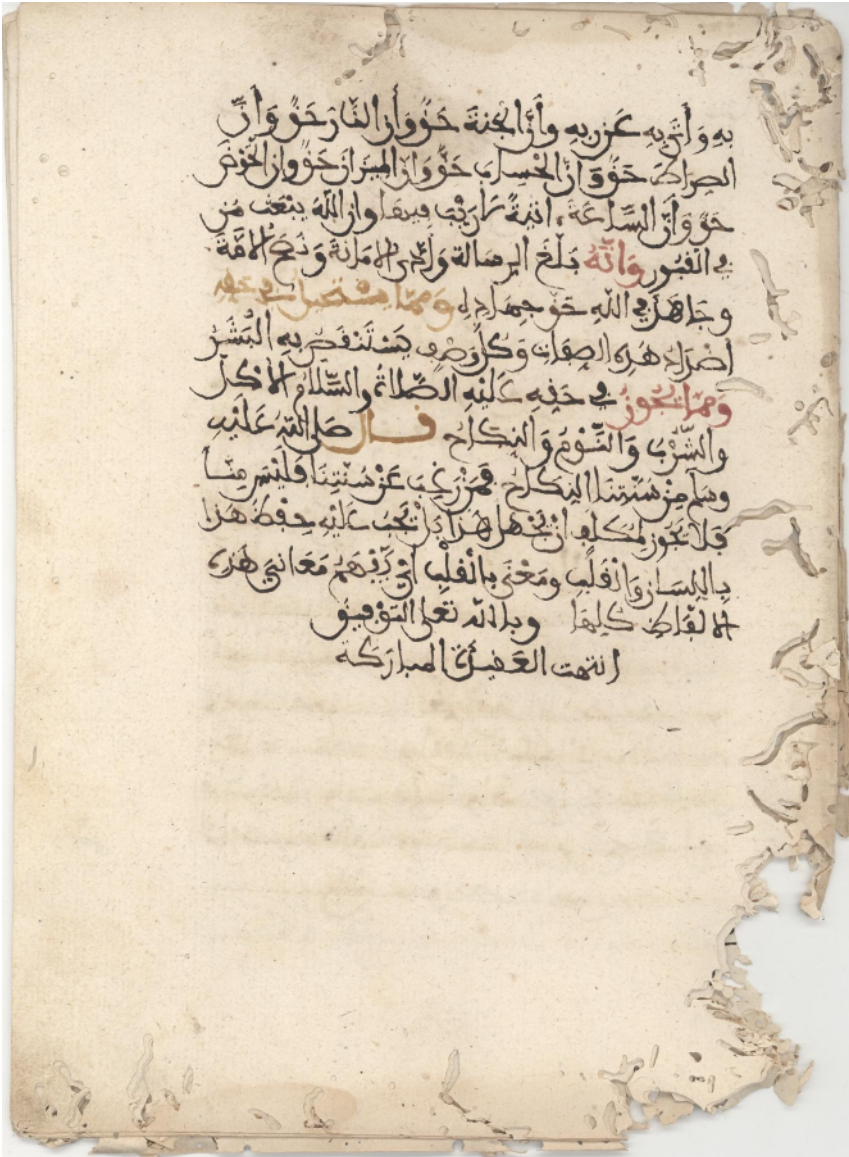 به وأتى به عن ربه وأن الجنة حق وأن النار حق وأن
الصراط حق وأن الحساب حق وأن الميزان حق وأن الحوض
حق وأن الساعة ءاتية لا ريب فيها وأن الله يبعث من
في القبور وأنه بلغ الرسالة وأدى الامانة ونصح الامة
وجاهد في الله حق جهاده ومما يستحيل في حقه
اضداد هذه الصفات وكل وصف يستنقص به البشر
ومما يجوز في حقه عليه الصلاة والسلام الاكل
والشرب والنوم والنكاح قال صلى الله عليه
وسلم من سنتنا النكاح فمن رغب عن سنتنا فليس منا
فلا يجوز لمكلف أن يجهل هذا بل يجب عليه حفظ هذا
باللسان والقلب ومعنى بالقلب أي يفهم معاني هذه
الالفاظ كلها وبالله تعلى التوفيق
انتهت العقيدة المباركة